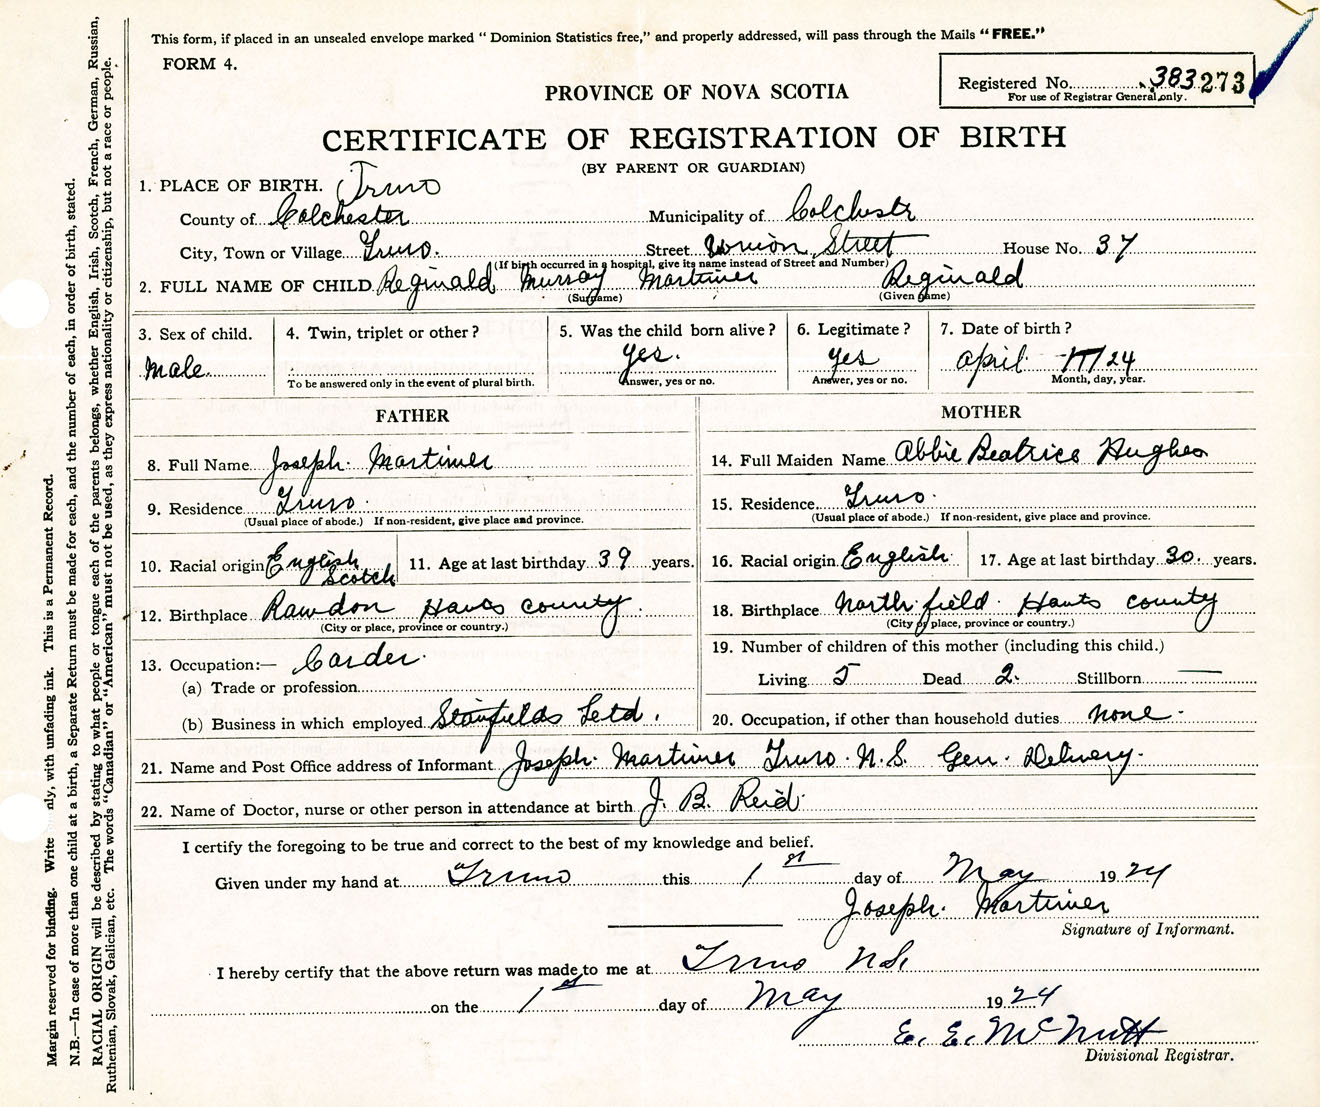 This form, if placed in an unsealed envelope marked " Dominion Statistics free," and properly addressed, will pass through the Mails "FREE."
FORM 4.
Registered No. 383 273
For use of Registrar General only.
PROVINCE OF NOVA SCOTIA
CERTIFICATE OF REGISTRATION OF BIRTH
(BY PARENT OR GUARDIAN)
1. PLACE OF BIRTH. Truro
County of Colchester Municipality of Colchestr
City, Town or Village Truro. Street Union Street House No. 37
(If birth occurred in a hospital, give its name instead of Street and Number)
2. FULL NAME OF CHILD Reginald Murray Martimer Reginald
(Surname) (Given name)
3. Sex of child. 4. Twin, triplet or other? 5. Was the child born alive? 6. Legitimate? 7. Date of birth?
male. yes. yes april 24
To be answered only in the event of plural birth. Answer, yes or no. Answer, yes or no. Month, day, year.
FATHER MOTHER
8. Full Name Joseph. Martimer 14. Full Maiden Name Abbie Beatrice Hughes
9. Residence Truro. 15. Residence Truro.
(Usual place of abode.) If non-resident, give place and province. (Usual place of abode.) If non-resident, give place and province.
10. Racial origin English Scotch 11. Age at last birthday 39 years. 16. Racial origin English 17. Age at last birthday 30. years.
12. Birthplace Rawdon Hants county. 18. Birthplace North field. Hants county
(City or place, province or country.) (City or place, province or country.)
13. Occupation:— Carder. 19. Number of children of this mother (including this child.)
(a) Trade or profession Living 5 Dead 2. Stillborn —
(b) Business in which employed Stanfields Letd. 20. Occupation, if other than household duties none.
21. Name and Post Office address of Informant Joseph. Martimer Truro. N.S. Gen. Delivery.
22. Name of Doctor, nurse or other person in attendance at birth J. B. Reid.
I certify the foregoing to be true and correct to the best of my knowledge and belief.
Given under my hand at Truro this 1st day of May 1924
Joseph. Martimer
Signature of Informant.
I hereby certify that the above return was made to me at Truro N.S.
on the 1st day of May 1924
E. E. McNutt
Divisional Registrar.
Margin reserved for binding. Write nly, with unfading ink. This is a Permanent Record.
N.B.—In case of more than one child at a birth, a Separate Return must be made for each, and the number of each, in order of birth, stated.
RACIAL ORIGIN will be described by stating to what people or tongue each of the parents belongs, whether English, Irish, Scotch, French, German, Russian,
Ruthenian, Slovak, Galician, etc. The words "Canadian" or "American" must not be used, as they express nationality or citizenship, but not a race or people.